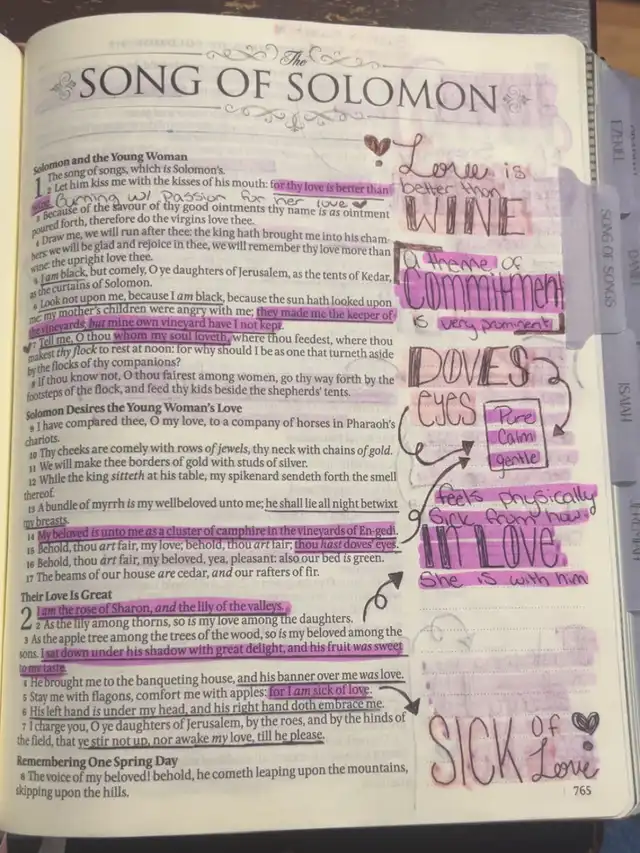 The
SONG OF SOLOMON
Solomon and the Young Woman
1 The song of songs, which is Solomon's.
2 Let him kiss me with the kisses of his mouth: for thy love is better than
wine.
Burning w/ passion for her love
3 Because of the savour of thy good ointments thy name is as ointment
poured forth, therefore do the virgins love thee.
4 Draw me, we will run after thee: the king hath brought me into his cham-
bers: we will be glad and rejoice in thee, we will remember thy love more than
wine: the upright love thee.
5 I am black, but comely, O ye daughters of Jerusalem, as the tents of Kedar,
as the curtains of Solomon.
6 Look not upon me, because I am black, because the sun hath looked upon
me: my mother's children were angry with me; they made me the keeper of
the vineyards; but mine own vineyard have I not kept.
7 Tell me, O thou whom my soul loveth, where thou feedest, where thou
makest thy flock to rest at noon: for why should I be as one that turneth aside
by the flocks of thy companions?
8 If thou know not, O thou fairest among women, go thy way forth by the
footsteps of the flock, and feed thy kids beside the shepherds' tents.
Solomon Desires the Young Woman's Love
9 I have compared thee, O my love, to a company of horses in Pharaoh's
chariots.
10 Thy cheeks are comely with rows of jewels, thy neck with chains of gold.
11 We will make thee borders of gold with studs of silver.
12 While the king sitteth at his table, my spikenard sendeth forth the smell
thereof.
13 A bundle of myrrh is my wellbeloved unto me; he shall lie all night betwixt
my breasts.
14 My beloved is unto me as a cluster of camphire in the vineyards of En-gedi.
15 Behold, thou art fair, my love; behold, thou art fair; thou hast doves' eyes.
16 Behold, thou art fair, my beloved, yea, pleasant: also our bed is green.
17 The beams of our house are cedar, and our rafters of fir.
Their Love Is Great
2 I am the rose of Sharon, and the lily of the valleys.
2 As the lily among thorns, so is my love among the daughters.
3 As the apple tree among the trees of the wood, so is my beloved among the
sons. I sat down under his shadow with great delight, and his fruit was sweet
to my taste.
4 He brought me to the banqueting house, and his banner over me was love.
5 Stay me with flagons, comfort me with apples: for I am sick of love.
6 His left hand is under my head, and his right hand doth embrace me.
7 I charge you, O ye daughters of Jerusalem, by the roes, and by the hinds of
the field, that ye stir not up, nor awake my love, till he please.
Remembering One Spring Day
8 The voice of my beloved! behold, he cometh leaping upon the mountains,
skipping upon the hills.
Love is
better than
WINE
a theme of
Commitment
is very prominent!
DOVES
eyes
Pure
Calm
gentle
feels physically
sick from how
IN LOVE
She is with him
SICK of
Love
765
EZEKIEL
SONG OF SONGS
ISAIAH